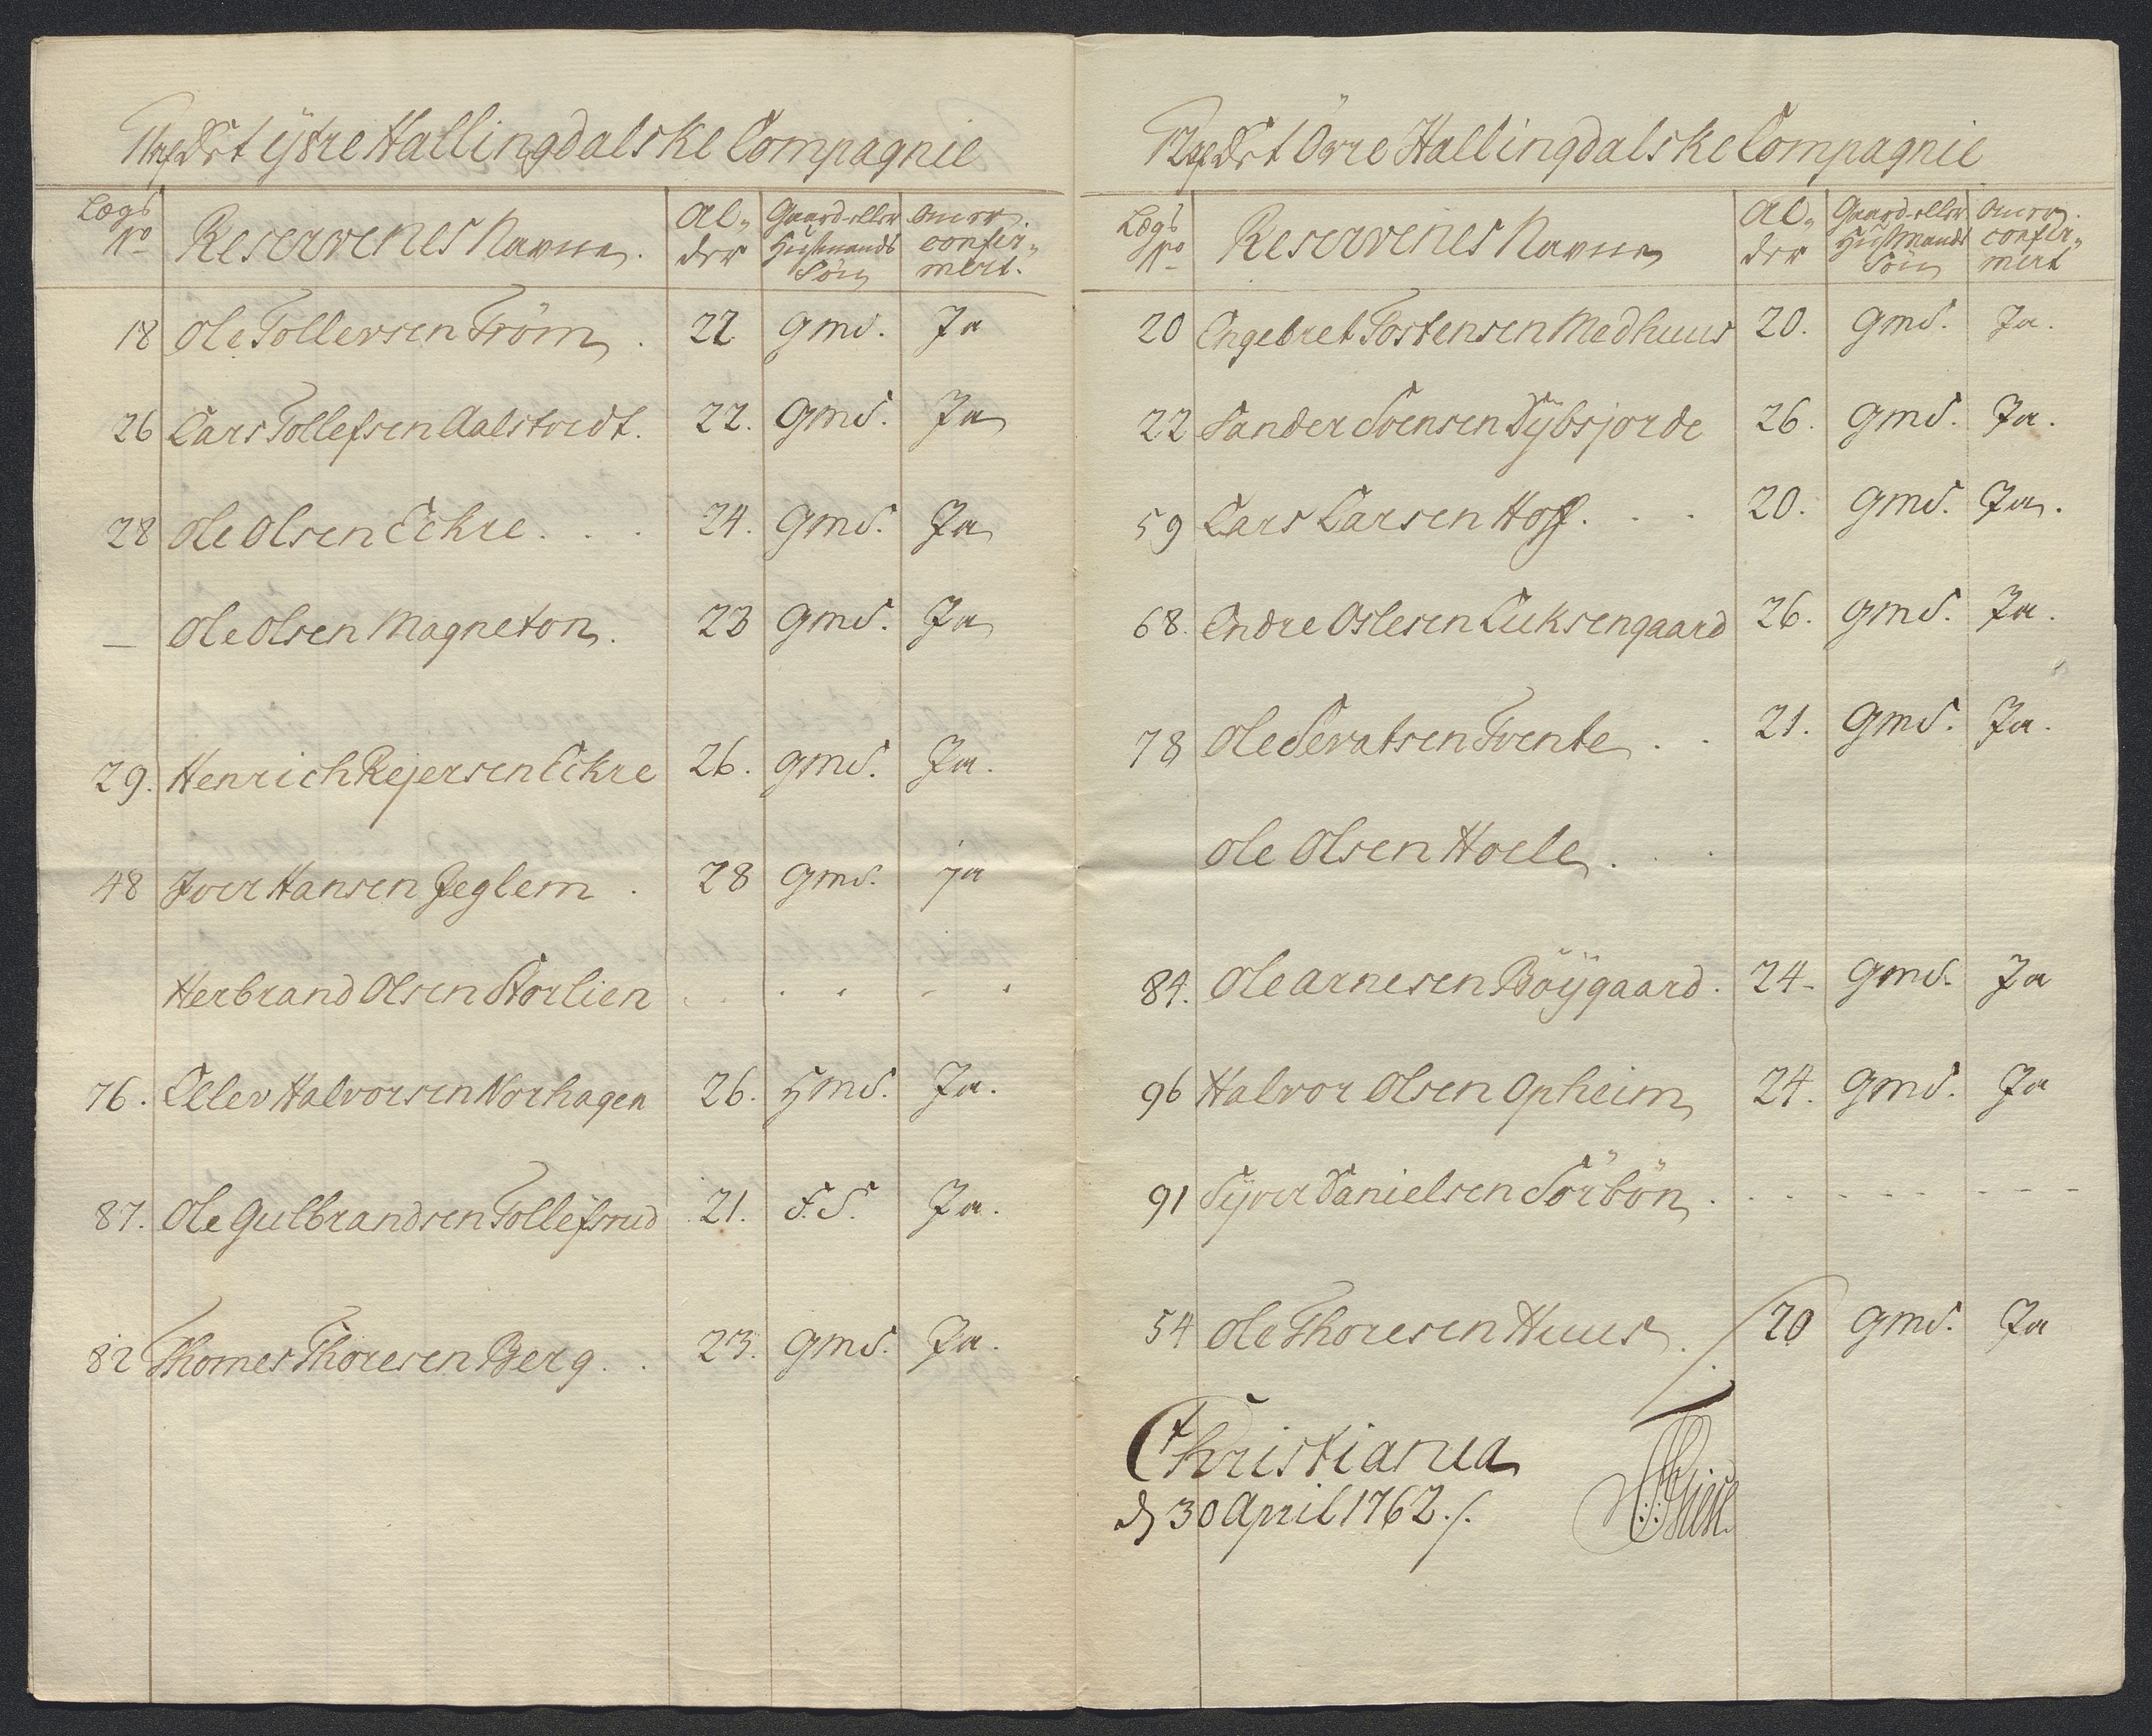 Af Det ÿtre Hallingdalske Compagnie
Lægs No Reservenes Navne. Al„ der Gaard-eller Huusmands Søn Om er confir„ mert.
18 Ole Tollevsen Trøm. 22 Gmd. Ja
26 Lars Tollefsen Aalstvedt. 22. Gmd. Ja
28 Ole Olsen Eckre . . . 24. Gmd. Ja
— Ole Olsen Magneton. 23 Gmd. Ja
29. Henrich Rejersen Eckre 26. Gmd. Ja.
48 Iver Hansen Jeglem . 28 Gmd. ja
Herbrand Olsen Storlien . . . - .
76. Ellev Halvorsen Norhagen 26. Hmd. Ja.
87. Ole Gulbrandsen Tollefsrud 21. S.S. Ja.
82 Thomes Thoresen Berg. . 23. Gmd. Ja.
Af Det Övre Hallingdalske Compagnie
Lægs No Reservenes Navne Al„ der Gaard-eller Huusmands Søn Om er. confir„ mert
20 Engebret Tostensen Medhuus 20. Gmd. Ja.
22 Sander Svensen Dÿbsjorde 26. Gmd. Ja.
59 Lars Larsen Hoff. . . 20. Gmd. Ja.
68. Endre Oslesen Luksengaard 26. Gmd. Ja.
78 Ole Sevatsen Tvente . . 21. Gmd. Ja.
Ole Olsen Hoele . . .
84. Ole Arnesen Böÿgaard. 24- Gmd. Ja
96 Halvor Olsen Opheim 24. Gmd. Ja
91 Syver Danielsen Sörbön . . - - - - - - - -
54 Ole Thoresen Huus. /. 20 Gmd. Ja
Christiania
d 30 April 1762./.